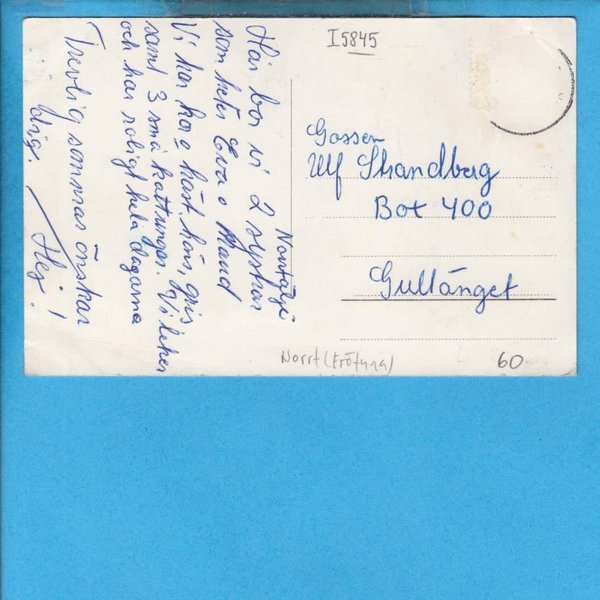 I5845
Norrtälje
Här bor vi 2 systrar
som heter Eva o Maud
Vi har ko o häst, höns, gris
samt 3 små kattungar. Vi leker
och har roligt hela dagarna
Trevlig sommar önskar
dig. Hej!
Gossen
Ulf Strandberg
Box 400
Gullänget
Norrt (Frötuna)
60